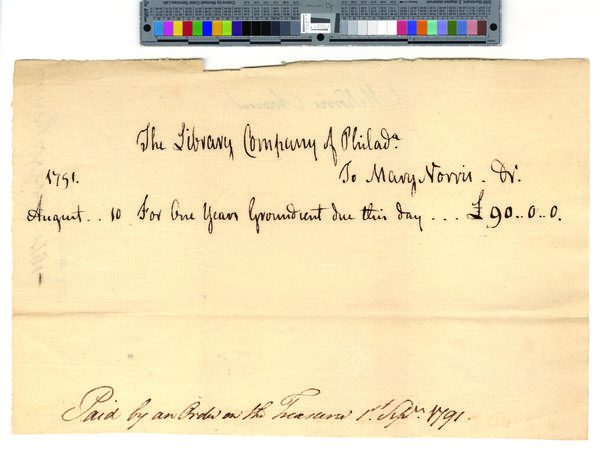 The Library Company of Philad.ª
1791. To Mary Norris. Dr.
August .. 10 For One Years Groundrent due this day ... £90..0..0.
Paid by an Order on the Treasurer 1st Sepr. 1791.